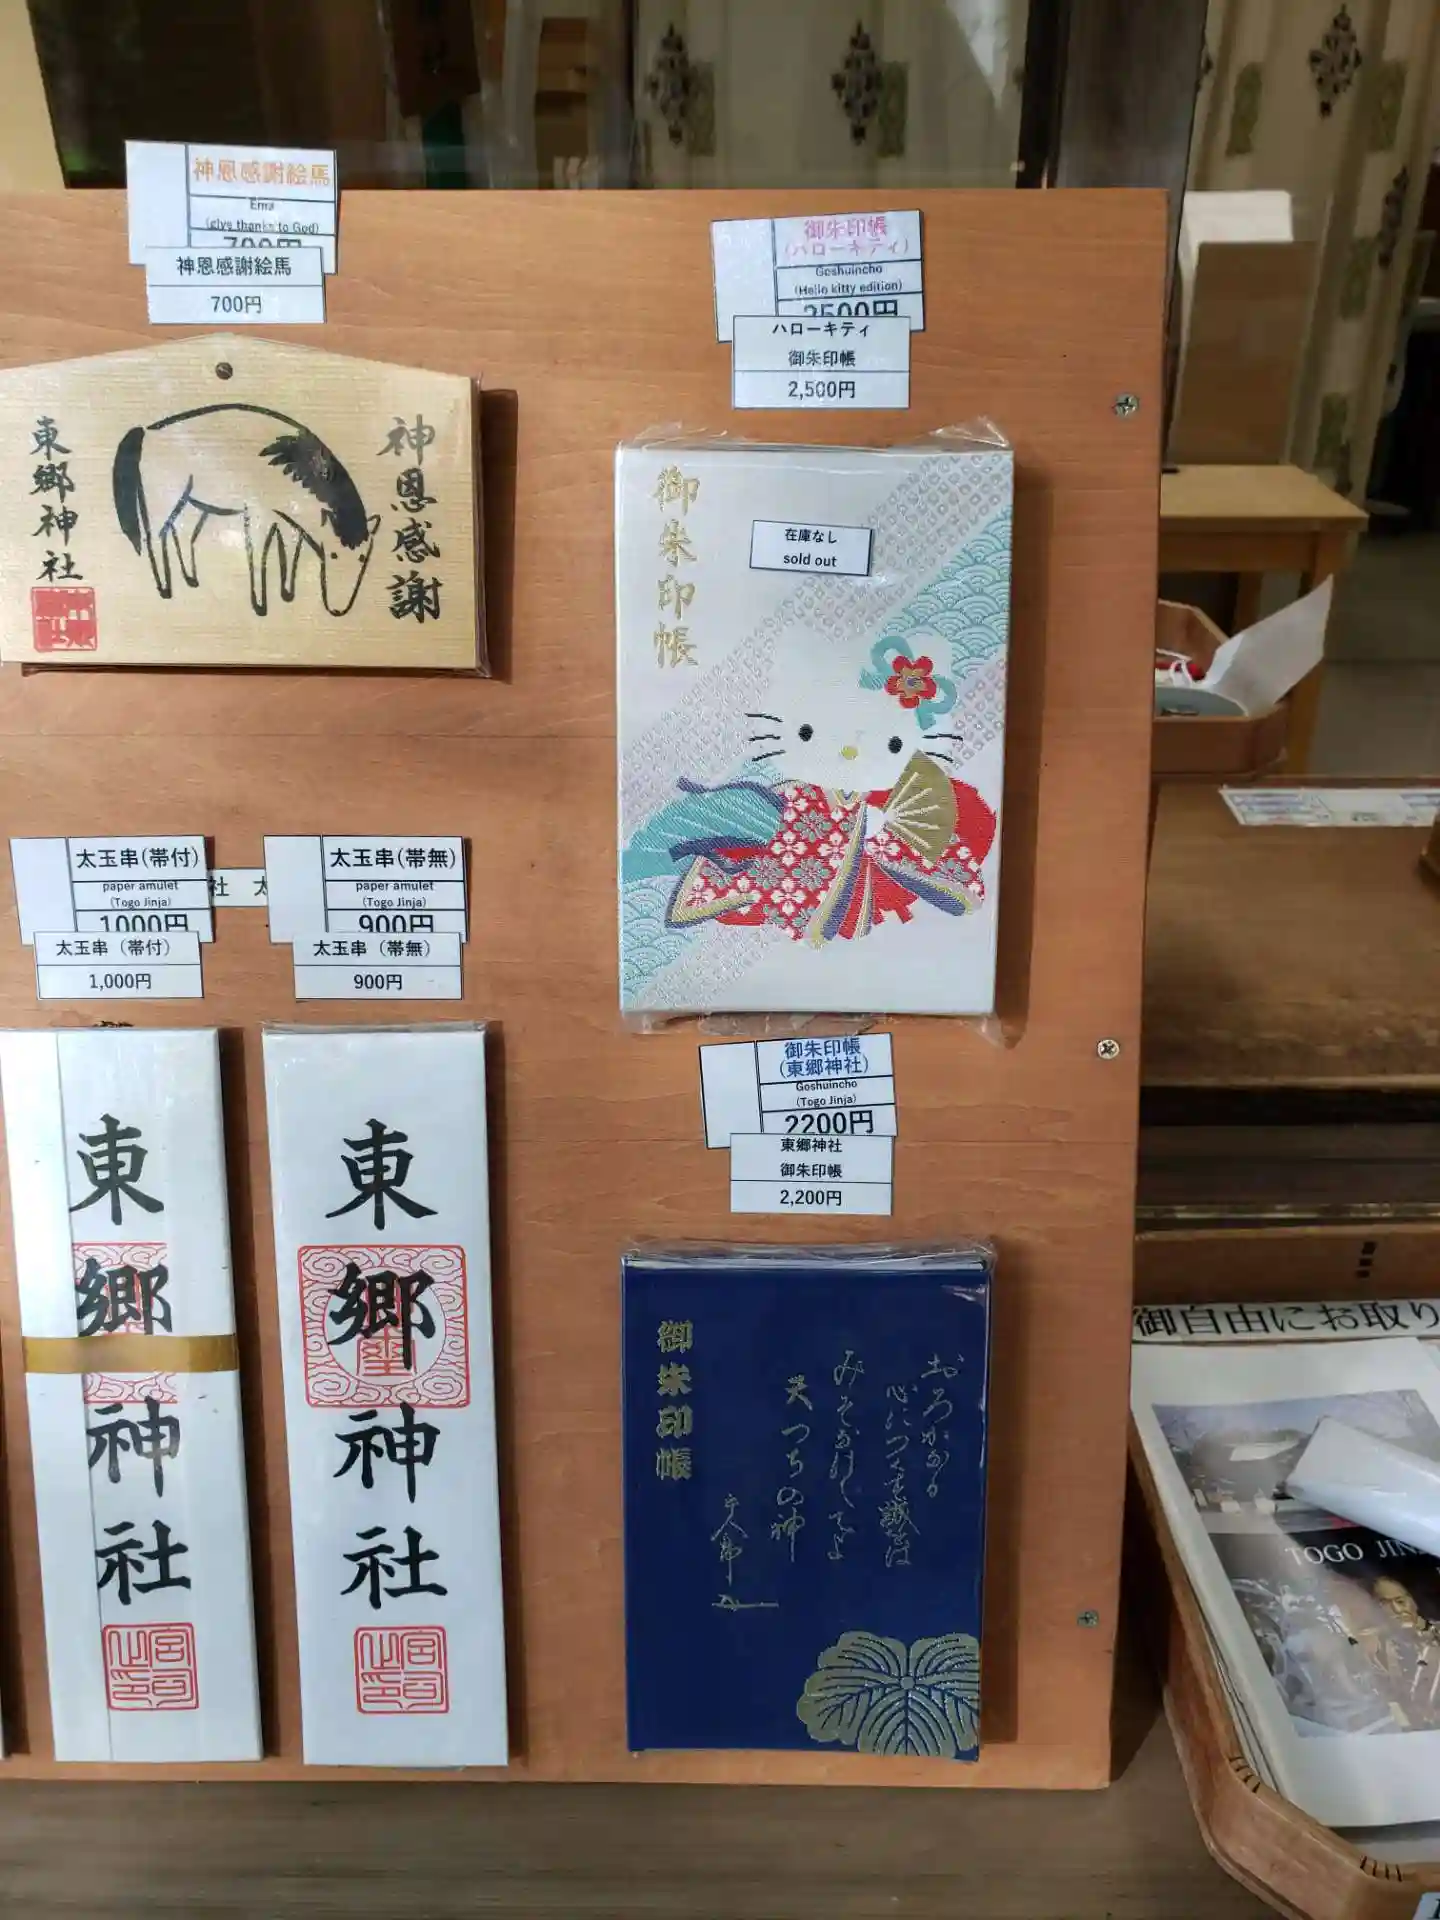 神恩感謝絵馬
Ema
(give thanks to God)
700円
神恩感謝絵馬
700円
神恩感謝
東郷神社
御朱印帳
(ハローキティ)
Goshuincho
(Hello kitty edition)
2500円
ハローキティ
御朱印帳
2,500円
御朱印帳
在庫なし
sold out
太玉串(帯付)
paper amulet
(Togo Jinja)
1000円
太玉串(帯付)
1,000円
社 太
太玉串(帯無)
paper amulet
(Togo Jinja)
900円
太玉串(帯無)
900円
東郷神社
東郷神社
御朱印帳
(東郷神社)
Goshuincho
(Togo Jinja)
2200円
東郷神社
御朱印帳
2,200円
御朱印帳
おろかなる
心につくす誠をば
みそなはしてよ
天つちの神
御自由にお取り
TOGO JIN